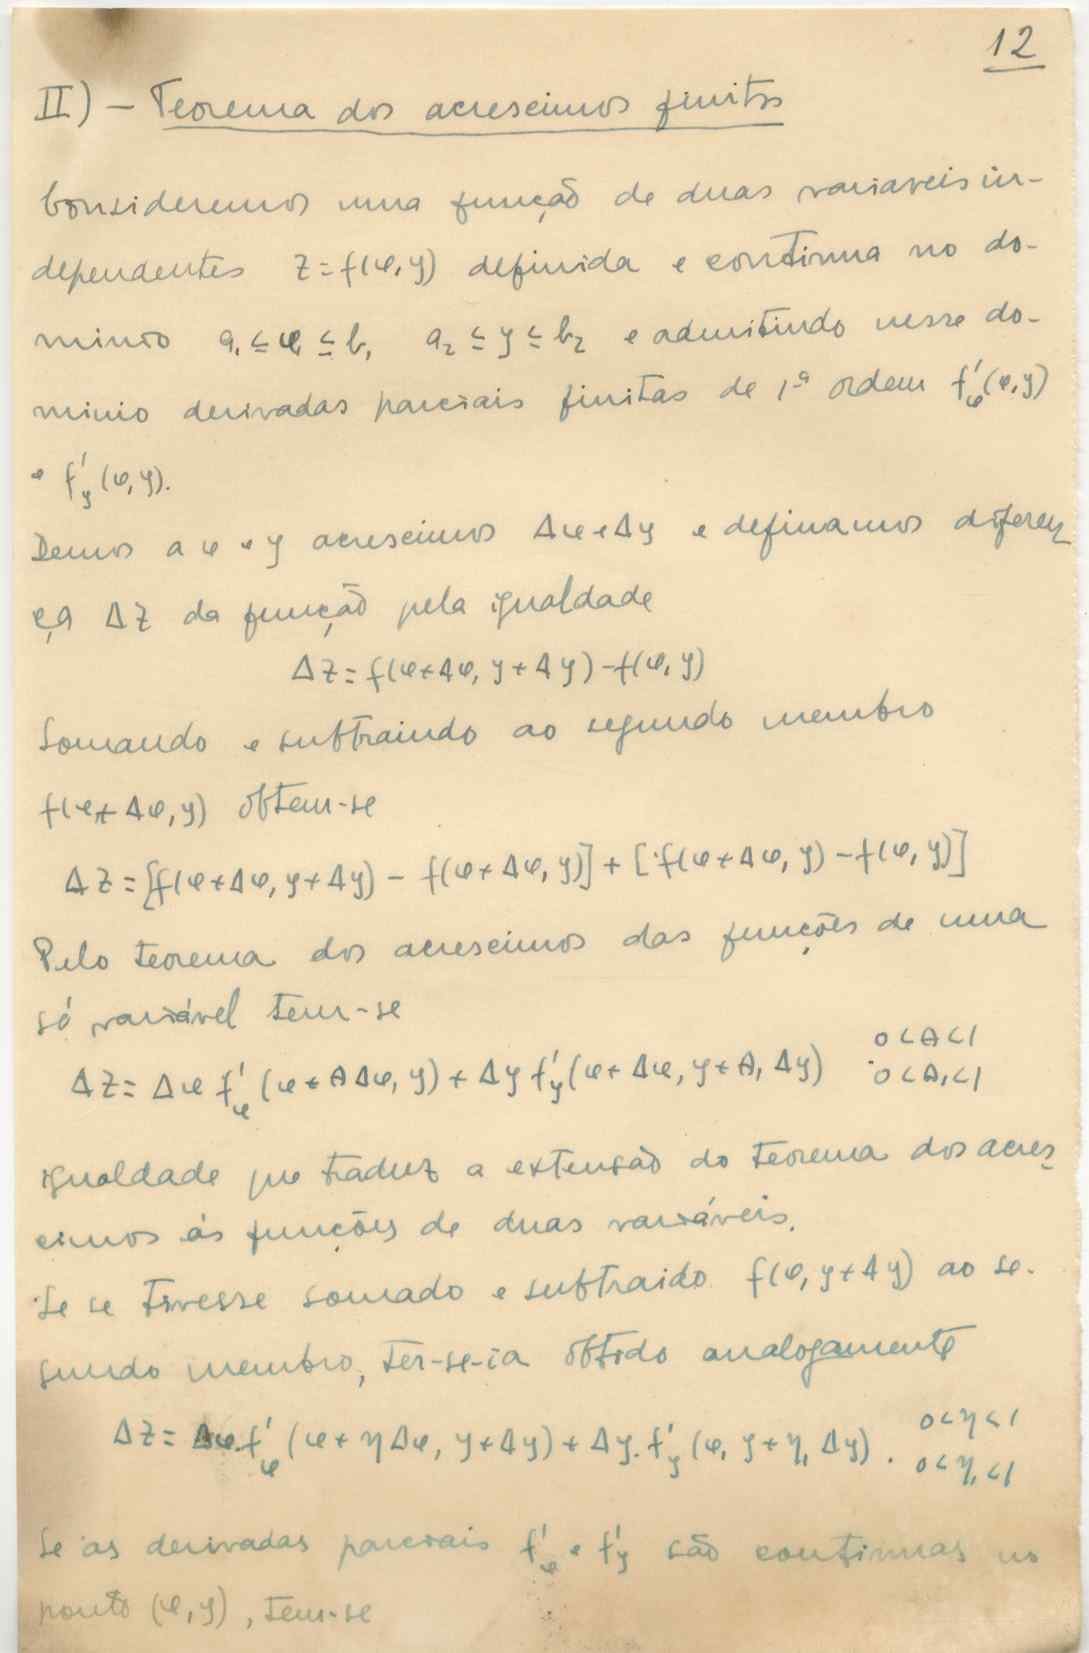 12
II) - Teorema dos acrescimos finitos
Consideremos uma função de duas variaveis in-
dependentes z = f(φ, y) definida e continua no do-
minio a₁ ≤ φ ≤ b₁ a₂ ≤ y ≤ b₂ e admitindo nesse do-
minio derivadas parciais finitas de 1ª ordem f'φ(φ, y)
e f'y (φ, y).
Demos a φ e y acrescimos Δφ e Δy e definamos diferen
ça Δz da função pela igualdade
Δz = f(φ+Δφ, y+Δy) - f(φ, y)
Somando e subtraindo ao segundo membro
f(φ+Δφ, y) obtem-se
Δz = [f(φ+Δφ, y+Δy) - f(φ+Δφ, y)] + [f(φ+Δφ, y) - f(φ, y)]
Pelo teorema dos acrescimos das funções de uma
só variável tem-se
Δz = Δφ f'φ (φ+θΔφ, y) + Δy f'y (φ+Δφ, y+θ₁Δy) 0<θ<1
0<θ₁<1
igualdade que traduz a extensão do teorema dos acres
cimos ás funções de duas variáveis.
Se se tivesse somado e subtraido f(φ, y+Δy) ao se-
gundo membro, ter-se-ia obtido analogamente
Δz = Δφ.f'φ (φ+ηΔφ, y+Δy) + Δy.f'y (φ, y+η₁Δy). 0<η<1
0<η₁<1
Se as derivadas parciais f'φ e f'y são continuas no
ponto (φ, y), tem-se